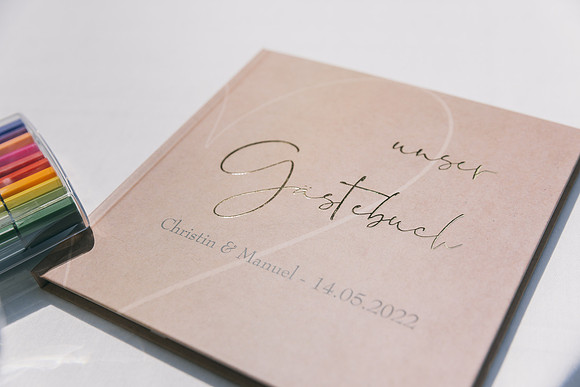 unser
Gästebuch
Christin & Manuel - 14.05.2022